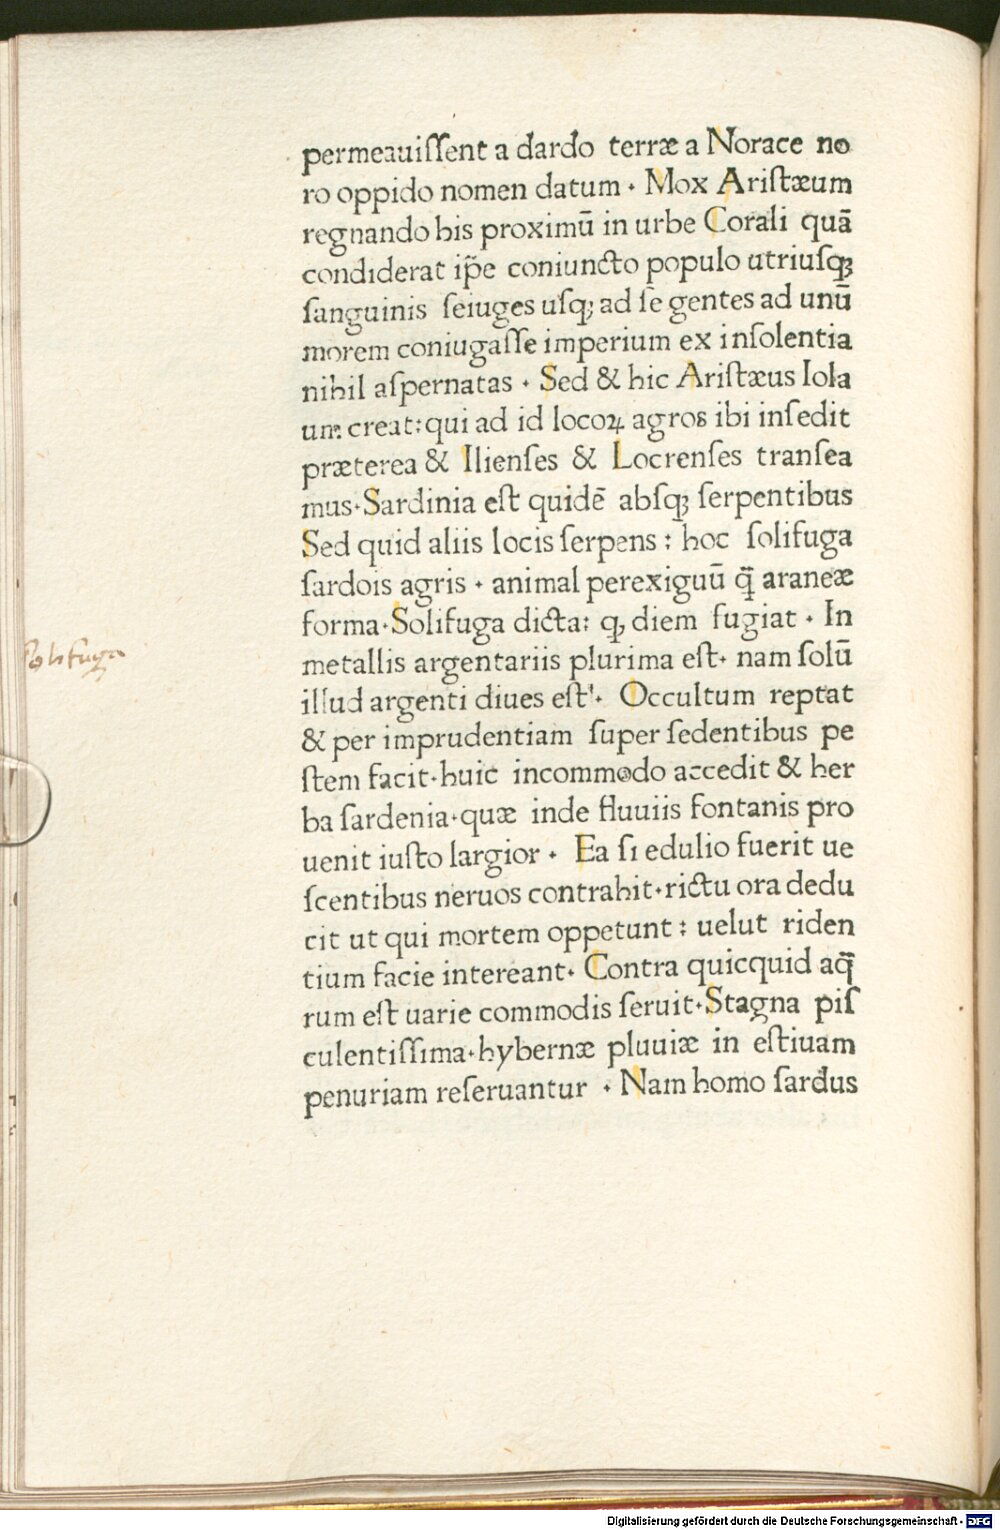 permeauiſſent a dardo terræ a Norace no
ro oppido nomen datum · Mox Ariſtæum
regnando his proximū in urbe Corali quā
condiderat ip̄e coniuncto populo utriuſqꝫ
ſanguinis ſeiuges uſqꝫ ad ſe gentes ad unū
morem coniugaſſe imperium ex inſolentia
nihil aſpernatas · Sed & hic Ariſtæus Iola
um creat: qui ad id locoꝝ agros ibi inſedit
præterea & Ilienſes & Locrenſes tranſea
mus· Sardinia eſt quidē abſqꝫ ſerpentibus
Sed quid aliis locis ſerpens : hoc ſolifuga
ſardois agris · animal perexiguū q̄ araneæ
forma· Solifuga dicta: qꝫ diem fugiat · In
metallis argentariis plurima eſt· nam ſolū
illud argenti diues eſt'· Occultum reptat
& per imprudentiam ſuper ſedentibus pe
ſtem facit· huic incommodo accedit & her
ba ſardenia· quæ inde fluuiis fontanis pro
uenit iuſto largior · Ea ſi edulio fuerit ue
ſcentibus neruos contrahit· rictu ora dedu
cit ut qui mortem oppetunt : uelut riden
tium facie intereant· Contra quicquid aq̄
rum eſt uarie commodis ſeruit· Stagna piſ
culentiſſima· hybernæ pluuiæ in eſtiuam
penuriam reſeruantur · Nam homo ſardus
Solifuga
Digitalisierung gefördert durch die Deutsche Forschungsgemeinschaft - DFG